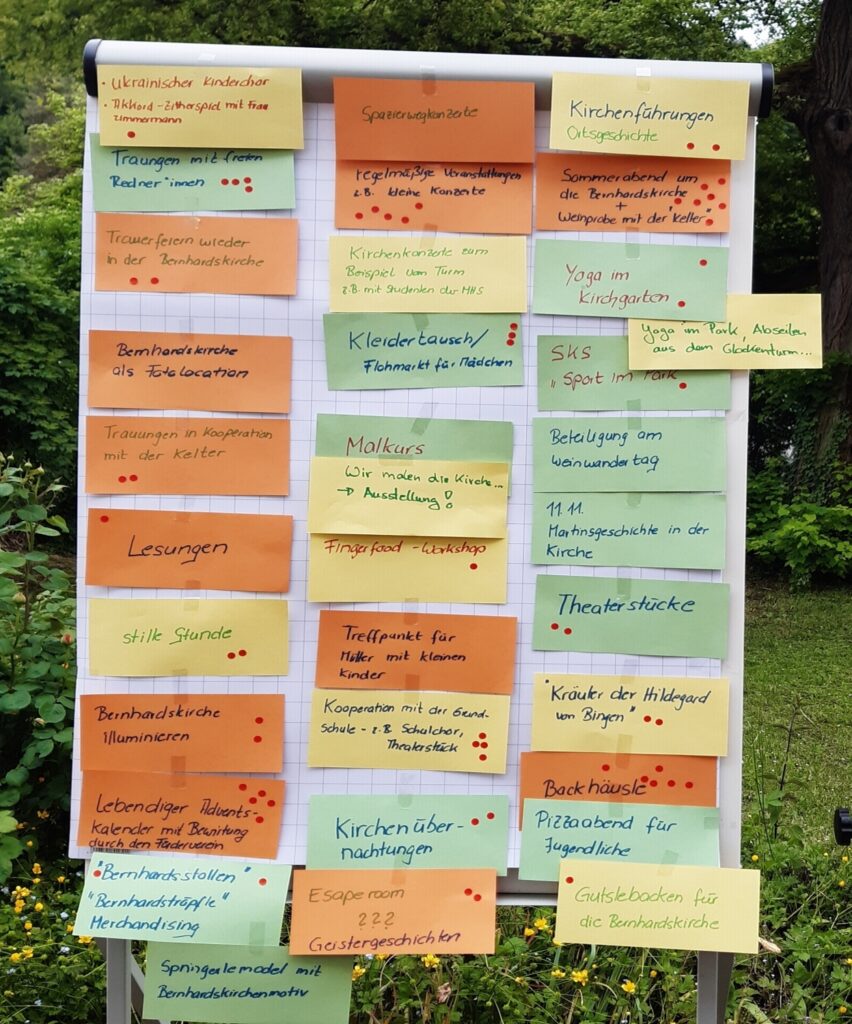 • Ukrainischer Kinderchor
• Akkord-Zitherspiel mit Frau
Zimmermann
Traungen mit freien
Redner*innen
Trauerfeiern wieder
in der Bernhardskirche
Bernhardskirche
als Fotolocation
Trauungen in Kooperation
mit der Kelter
Lesungen
stille Stunde
Bernhardskirche
illuminieren
Lebendiger Advents-
Kalender mit Bewirtung
durch den Förderverein
"Bernhardsstollen"
"Bernhardströpfle"
Merchandising
Springerlemodel mit
Bernhardskirchenmotiv
Spazierwegkonzerte
regelmäßige Veranstaltungen
z.B. kleine Konzerte
Kirchenkonzerte zum
Beispiel vom Turm
z.B. mit Studenten der MHS
Kleidertausch/
Flohmarkt für Mädchen
Malkurs
Wir malen die Kirche...
→ Ausstellung!
Fingerfood-Workshop
Treffpunkt für
Mütter mit kleinen
Kinder
Kooperation mit der Grund-
Schule - z.B. Schulchor,
Theaterstück
Kirchenüber-
nachtungen
Esaperoom
???
Geistergeschichten
Kirchenführungen
Ortsgeschichte
Sommerabend um
die Bernhardskirche
+
Weinprobe mit der "Kelter"
Yoga im
Kirchgarten
Yoga im Park, Abseilen
aus dem Glockenturm...
SKS
"Sport im Park"
Beteiligung am
Weinwandertag
11.11.
Martinsgeschichte in der
Kirche
Theaterstücke
"Kräuter der Hildegard
von Bingen"
Backhäusle
Pizzaabend für
Jugendliche
Gutslebacken für
die Bernhardskirche